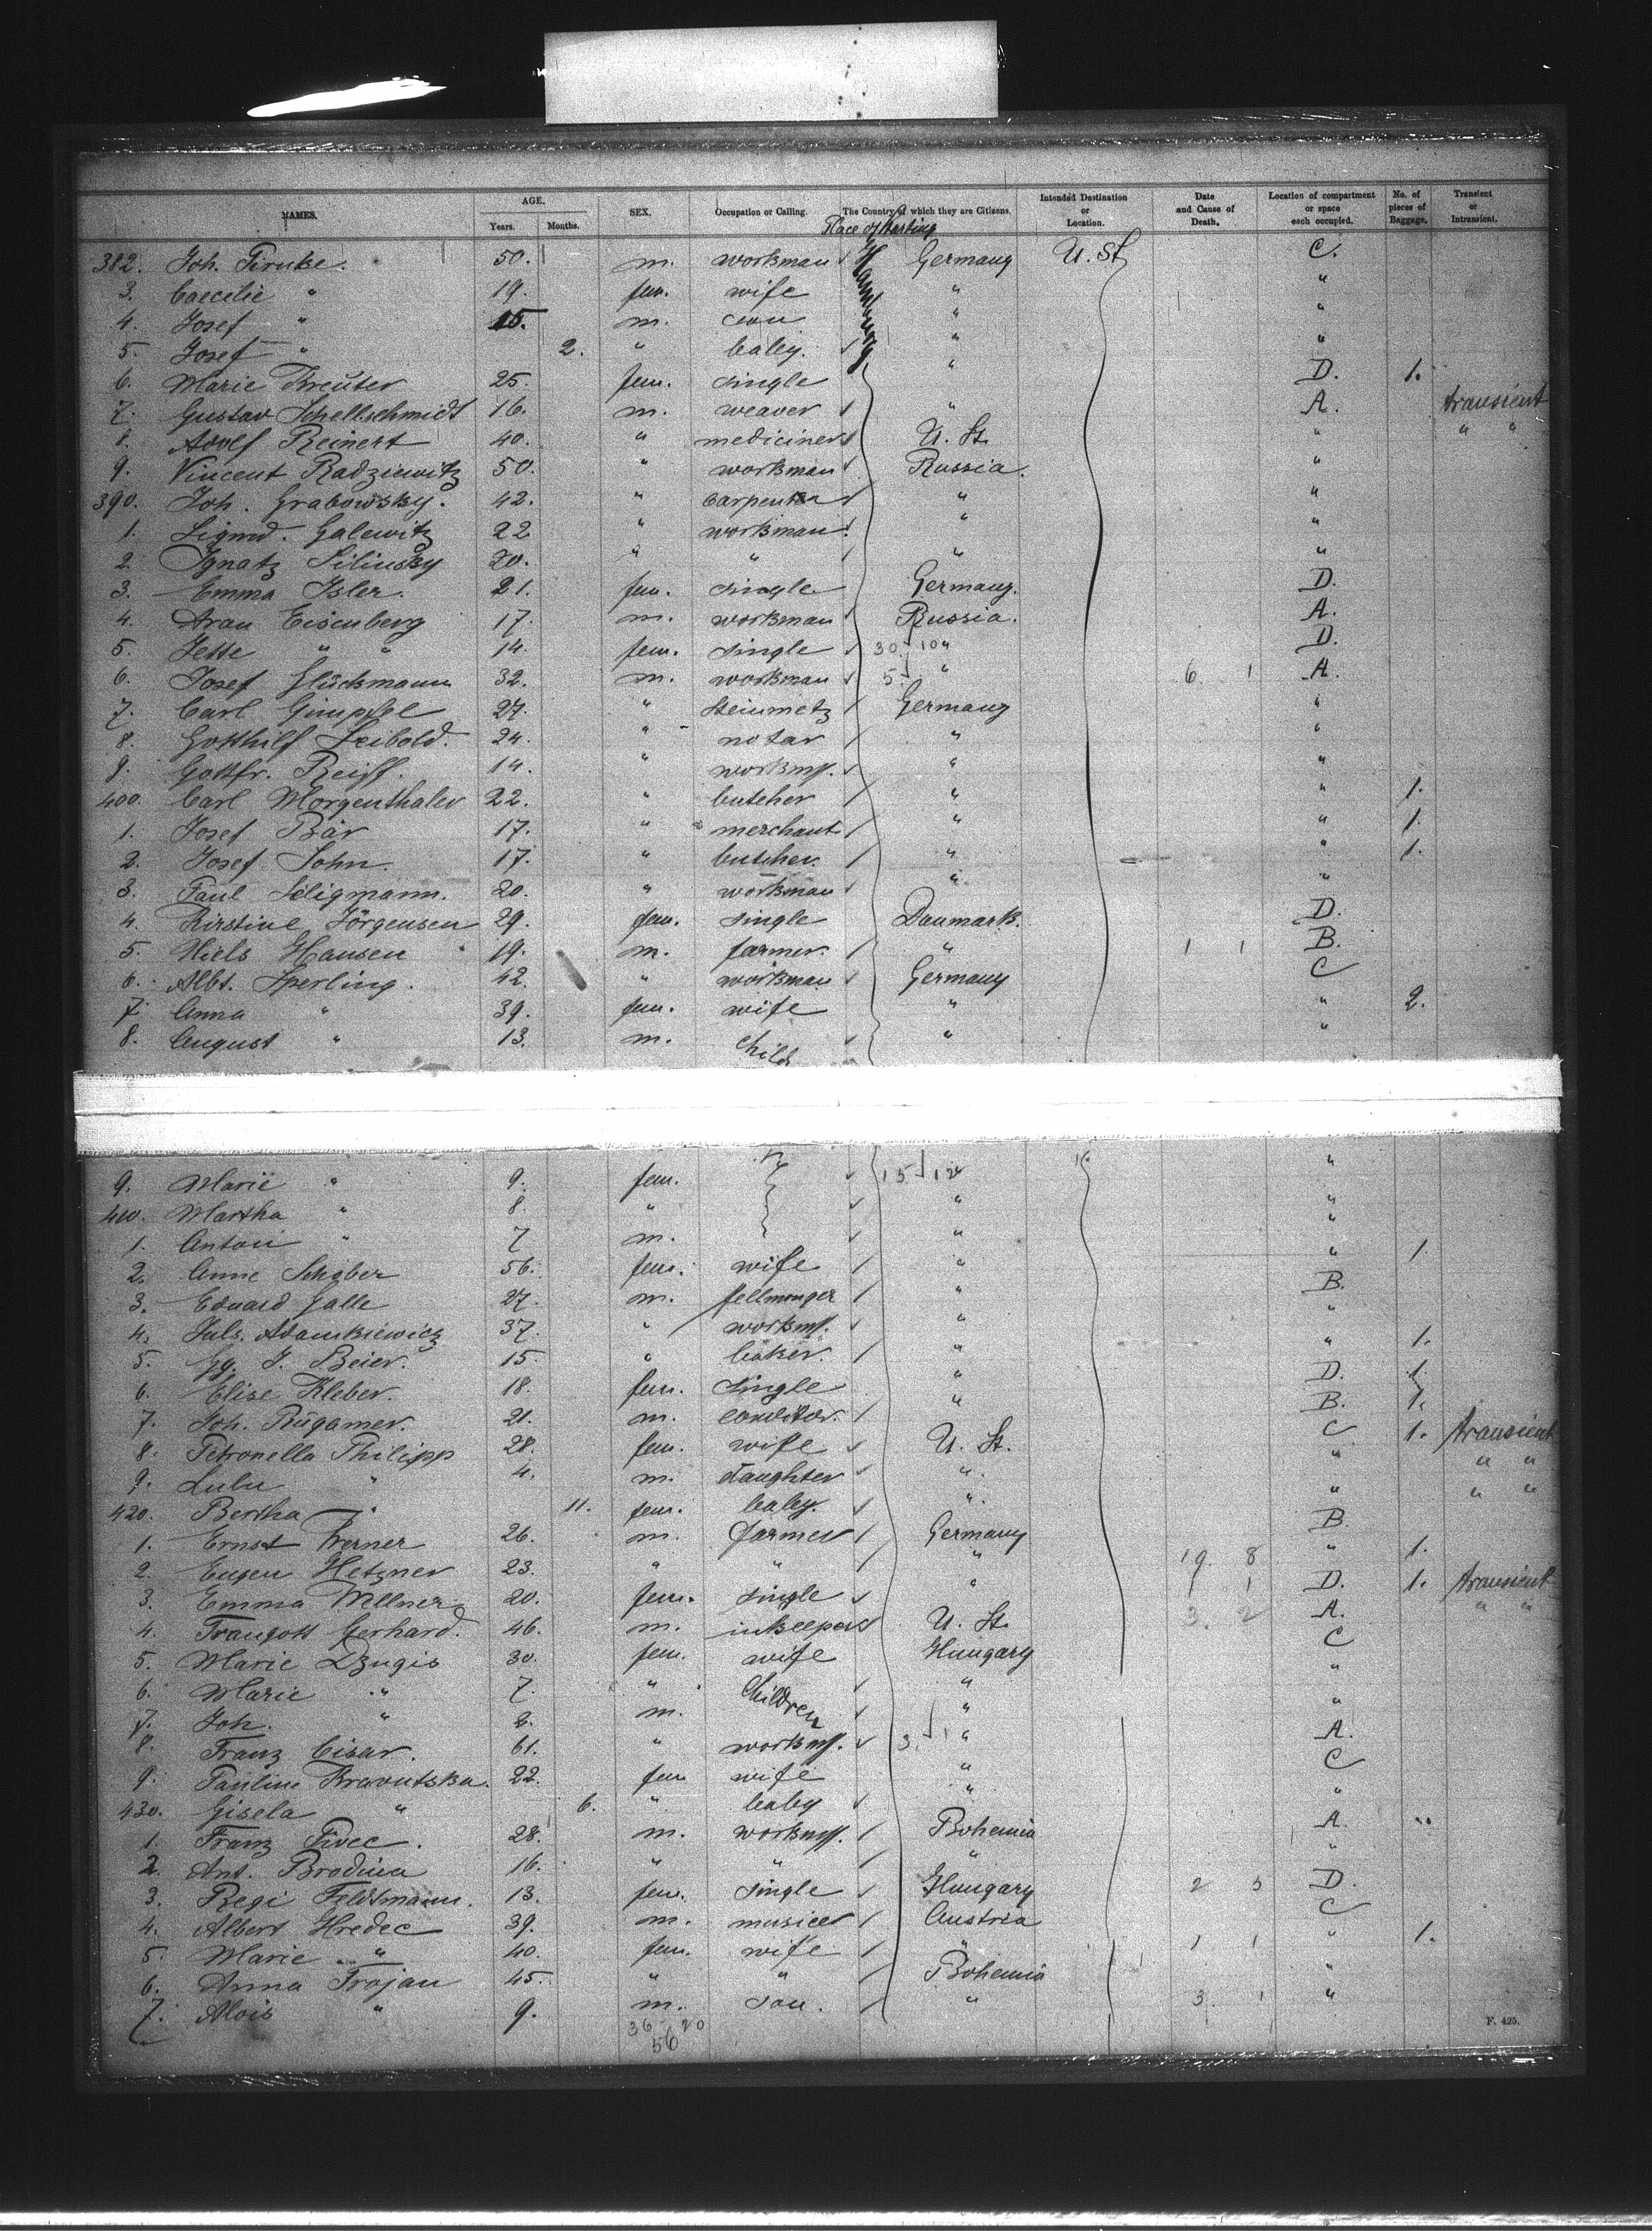 NAMES. AGE. Years. Months. SEX. Occupation or Calling. The Country of which they are Citizens. Intended Destination or Location. Date and Cause of Death. Location of compartment or space each occupied. No. of pieces of Baggage. Transient or Intransient.
Place of starting
382. Joh. 50. m. workman Hamburg Germany U. St. C.
3. Caecilie " 19. fem. wife " "
4. Josef " 15. m. son " "
5. Josef " 2. " baby. " "
6. Marie Kreuter 25. fem. single " D. 1.
7. Gustav Schellschmidt 16. m. weaver " A. transient
8. Adolf Reinert 40. " mediciner U. St. " " "
9. Vincent Radziewitz 50. " workman Russia. "
390. Joh. Grabowsky. 42. " carpenter " "
1. Sigmd. Galewitz 22 " workman " "
2. Ignatz Silinsky 20. " " " "
3. Emma Isler. 21. fem. single Germany. D.
4. Aran Eisenberg 17. m. workman Russia. A.
5. Jette " " 14. fem. single 30 104 D.
6. Josef Glückmann 32. m. workman 5 " 6 1 A.
7. Carl Gimpfel 27. " steinmetz Germany "
8. Gotthilf Leibold. 24. " notar " "
9. Gottfr. Reiff. 14. " workm. " "
400. Carl Morgenthaler 22. " butcher " " 1.
1. Josef Bär 17. " merchant " " 1.
2. Josef Sohn. 17. " butcher. " " 1.
3. Paul Seligmann. 20. " workman " "
4. Kirstine Jörgensen 29. fem. single Danmark. D.
5. Niels Hansen 19. m. farmer. " 1 1 B.
6. Albt. Sperling. 42. " workman Germany C
7. Anna " 39. fem. wife " " 2.
8. August " 13. m. child " "
9. Marie " 9. fem. 15 12 "
410. Martha " 8. " " "
1. Anton " 7 m. " "
2. Anne Schober 56. fem. wife " " 1.
3. Eduard Galle 27. m. fellmonger " B.
4. Juls. Adamkiewicz 37. " workm. " "
5. Gg. J. Beier. 15. " baker. " " 1.
6. Elise Kleber. 18. fem. single " D. 1.
7. Joh. Rügamer. 21. m. conditor. " B. 1.
8. Petronella Philipp 28. fem. wife U. St. C 1. transient
9. Lulu " 4. m. daughter " " " "
420. Bertha " 11. fem. baby. " " " "
1. Ernst Werner 26. m. farmer Germany B
2. Eugen Hetzner 23. " " " 19. 8 " 1.
3. Emma Wellner 20. fem. single " 1 1 D. 1. transient
4. Traugott Gerhard. 46. m. inkeeper U. St. 3. 2 A. " "
5. Marie Dzugis 30. fem. wife Hungary C
6. Marie " 7. " Children " "
7. Joh. " 2. m. " "
8. Franz Cisar. 61. " workm. 3. 1 " A.
9. Pauline Kravutska. 22. fem wife " C
430. Gisela " 6. " baby " "
1. Franz Pivec. 28. m. workm. Bohemia A.
2. Ant. Brodina 16. " " " "
3. Regi Feldtmann. 13. fem. single Hungary 2 3 D.
4. Albert Hredec 39. m. musicer Austria C
5. Marie " 40. fem. wife " 1 1 " 1.
6. Anna Trojan 45. " " Bohemia "
7. Alois " 9. m. son. " 3. 1 "
36 20
56
F. 425.